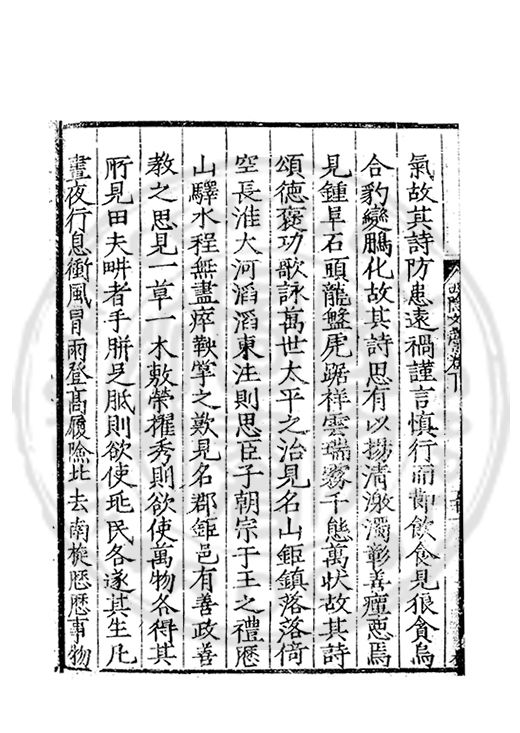 氣故其詩防患遠禍謹言慎行而節飲食見狼貪烏
合豹變鵬化故其詩思有以揚清激濁彰善癉惡焉
見鍾阜石頭龍盤虎踞祥雲瑞霧千態萬狀故其詩
頌德褒功歌詠萬世太平之治見名山鉅鎮落落倚
空長淮大河滔滔東注則思臣子朝宗于王之禮歷
山驛水程無盡瘁鞅掌之歎見名郡鉅邑有善政善
教之思見一草一木敷榮擢秀則欲使萬物各得其
所見田夫畊者手胼足胝則欲使兆民各遂其生凡
晝夜行息衝風冒雨登高履險北去南旋歷歷事物